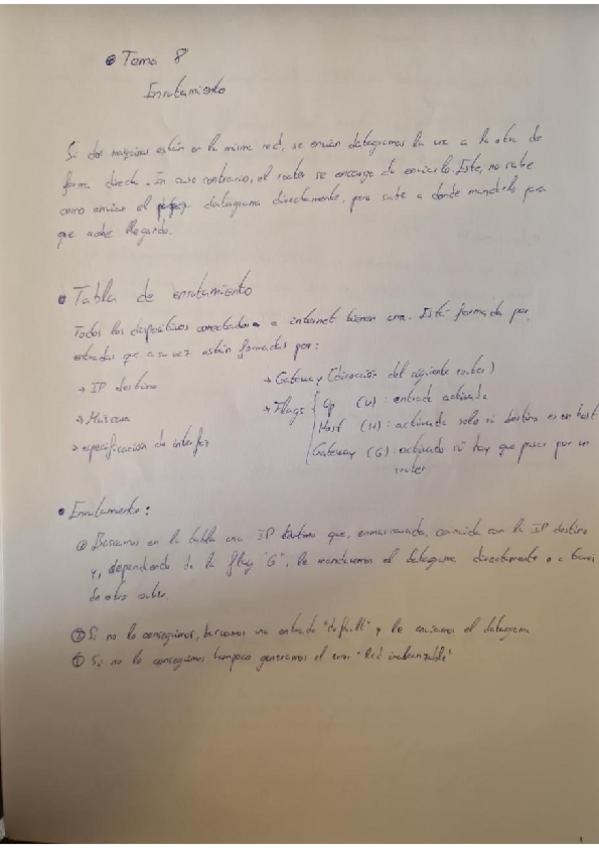 • Tema 8
Enrutamiento
Si dos maquinas están en la misma red, se envían datagramas la una a la otra de
forma directa. En caso contrario, el router se encarga de enviarlo. Este, no sabe
como enviar el datagrama directamente, pero sabe a donde mandarlo para
que acabe llegando.
• Tabla de enrutamiento
Todos los dispositivos conectados a internet tienen una. Está formada por
entradas que a su vez están formadas por:
→ IP destino
→ Máscara
→ especificación de interfaz
→ Gateway (dirección del siguiente router)
→ Flags { Up (U): entrada activada
Host (H): activada solo si destino es un host
Gateway (G): activado si hay que pasar por un
router
• Enrutamiento:
Buscamos en la tabla una IP destino que, enmascarada, coincida con la IP destino
y, dependiendo de la flag "G", le mandaremos el datagrama directamente o a través
de otro router.
② Si no lo conseguimos, buscamos una entrada "default" y le enviamos el datagrama
③ Si no lo conseguimos tampoco, generamos el error "Red inalcanzable"